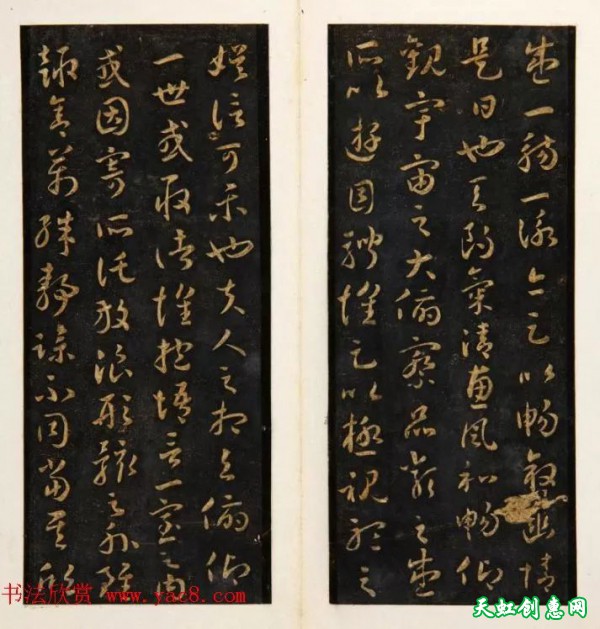 盛一觴一詠亦足以暢敘幽情
是日也天朗氣清惠風和暢仰
觀宇宙之大俯察品類之盛
所以遊目騁懷足以極視聽之
娛信可樂也夫人之相與俯仰
一世或取諸懷抱悟言一室之內
或因寄所託放浪形骸之外雖
趣舍萬殊靜躁不同當其欣
书法欣赏 www.yac8.com
天虹创意网